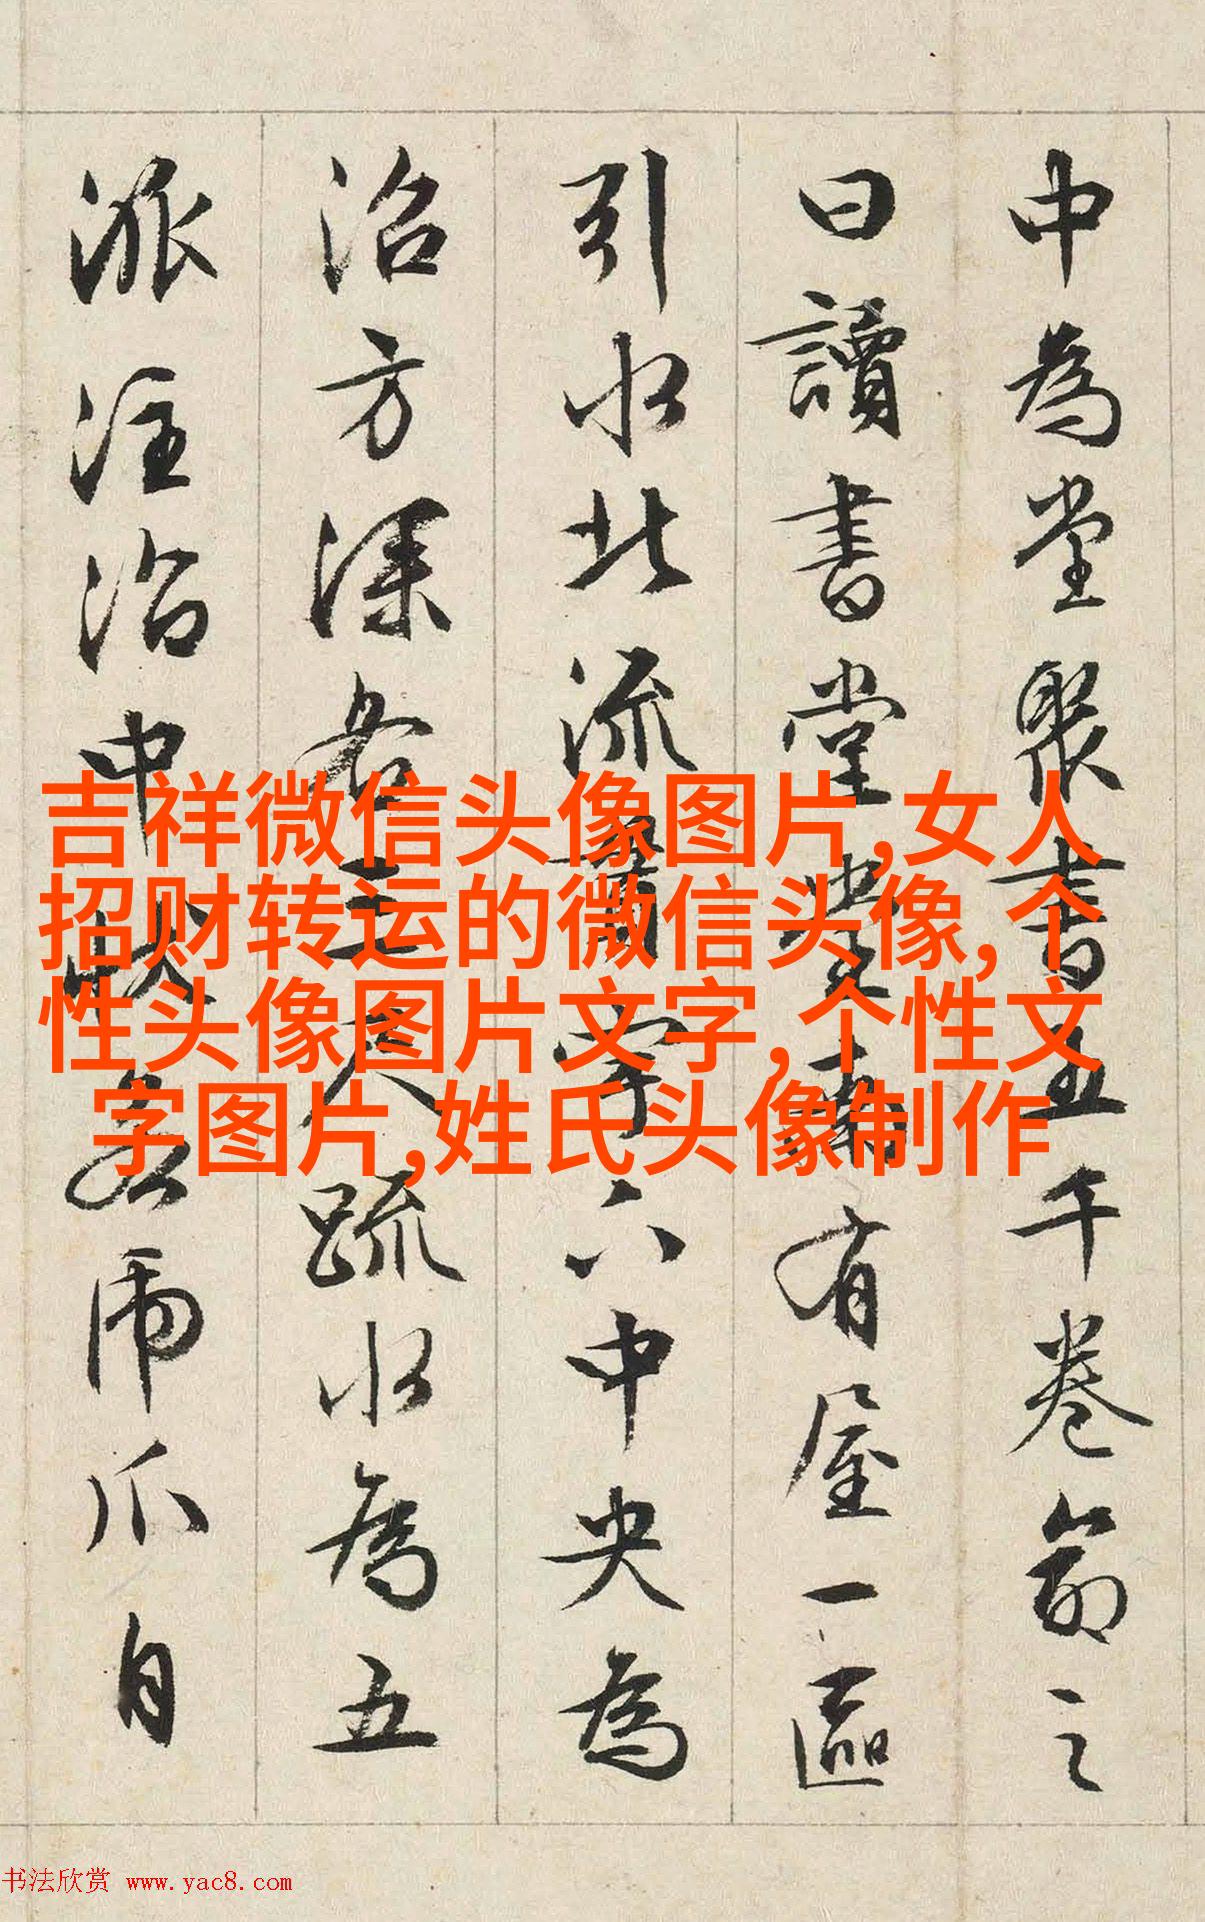 中為堂聚書五千卷命之
曰讀書堂堂南有屋一區
引水北流貫宇下中央為
沼方深各三尺疏水為五
派注沼中狀若虎爪自
吉祥微信头像图片,女人
招财转运的微信头像,个
性头像图片文字,个性文
字图片,姓氏头像制作
书法欣赏 www.yac8.com